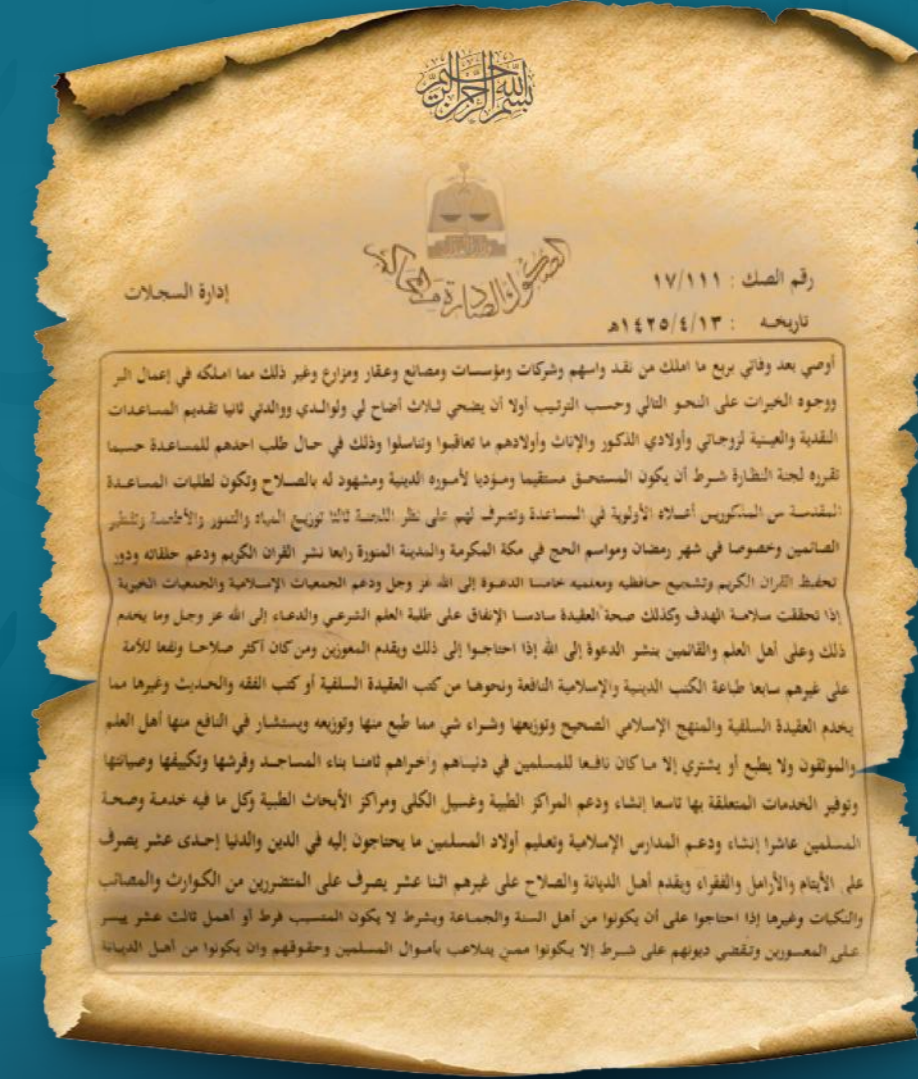 بسم الله الرحمن الرحيم
رقم الصك : ١٧/١١١
إدارة السجلات
تاريخه : ١٤٢٥/٤/١٣هـ
أوصي بعد وفاتي بربع ما املك من نقد واسهم وشركات ومؤسسات ومصانع وعقار ومزارع وغير ذلك مما املكه في إعمال البر
ووجوه الخيرات على النحو التالي وحسب الترتيب أولا أن يضحي ثلاث أضاح لي ولوالدي ووالدتي ثانيا تقديم المساعدات
النقدية والعينية لزوجاتي وأولادي الذكور والإناث وأولادهم ما تعاقبوا وتناسلوا وذلك في حال طلب احدهم للمساعدة حسبما
تقرره لجنة النظارة شرط أن يكون المستحق مستقيما ومؤديا لأموره الدينية ومشهود له بالصلاح وتكون لطلبات المساعدة
المقدمة من المذكورين أعلاه الأولوية في المساعدة وتصرف لهم على نظر اللجنة ثالثا توزيع المياه والتمور والأطعمة وتفطير
الصائمين وخصوصا في شهر رمضان ومواسم الحج في مكة المكرمة والمدينة المنورة رابعا نشر القران الكريم ودعم حلقاته ودور
تحفيظ القران الكريم وتشجيع حافظيه ومعلميه خامسا الدعوة إلى الله عز وجل ودعم الجمعيات الإسلامية والجمعيات الخيرية
إذا تحققت سلامة الهدف وكذلك صحة العقيدة سادسا الإنفاق على طلبة العلم الشرعي والدعاء إلى الله عز وجل وما يخدم
ذلك وعلى أهل العلم والقائمين بنشر الدعوة إلى الله إذا احتاجوا إلى ذلك ويقدم المعوزين ومن كان أكثر صلاحا ونفعا للأمة
على غيرهم سابعا طباعة الكتب الدينية والإسلامية النافعة ونحوها من كتب العقيدة السلفية أو كتب الفقه والحديث وغيرها مما
يخدم العقيدة السلفية والمنهج الإسلامي الصحيح وتوزيعها وشراء شي مما طبع منها وتوزيعه ويستشار في النافع منها أهل العلم
والموثقون ولا يطبع أو يشتري إلا ما كان نافعا للمسلمين في دنياهم وأخراهم ثامنا بناء المساجد وفرشها وتكييفها وصيانتها
وتوفير الخدمات المتعلقة بها تاسعا إنشاء ودعم المراكز الطبية وغسيل الكلى ومراكز الأبحاث الطبية وكل ما فيه خدمة وصحة
المسلمين عاشرا إنشاء ودعم المدارس الإسلامية وتعليم أولاد المسلمين ما يحتاجون إليه في الدين والدنيا إحدى عشر يصرف
على الأيتام والأرامل والفقراء ويقدم أهل الديانة والصلاح على غيرهم اثنا عشر يصرف على المتضررين من الكوارث والمصائب
والنكبات وغيرها إذا احتاجوا على أن يكونوا من أهل السنة والجماعة وبشرط لا يكون المتسبب فرط أو أهمل ثالث عشر ييسر
على المعسورين وتقضي ديونهم على شرط إلا يكونوا ممن يتلاعب بأموال المسلمين وحقوقهم وان يكونوا من أهل الديانة